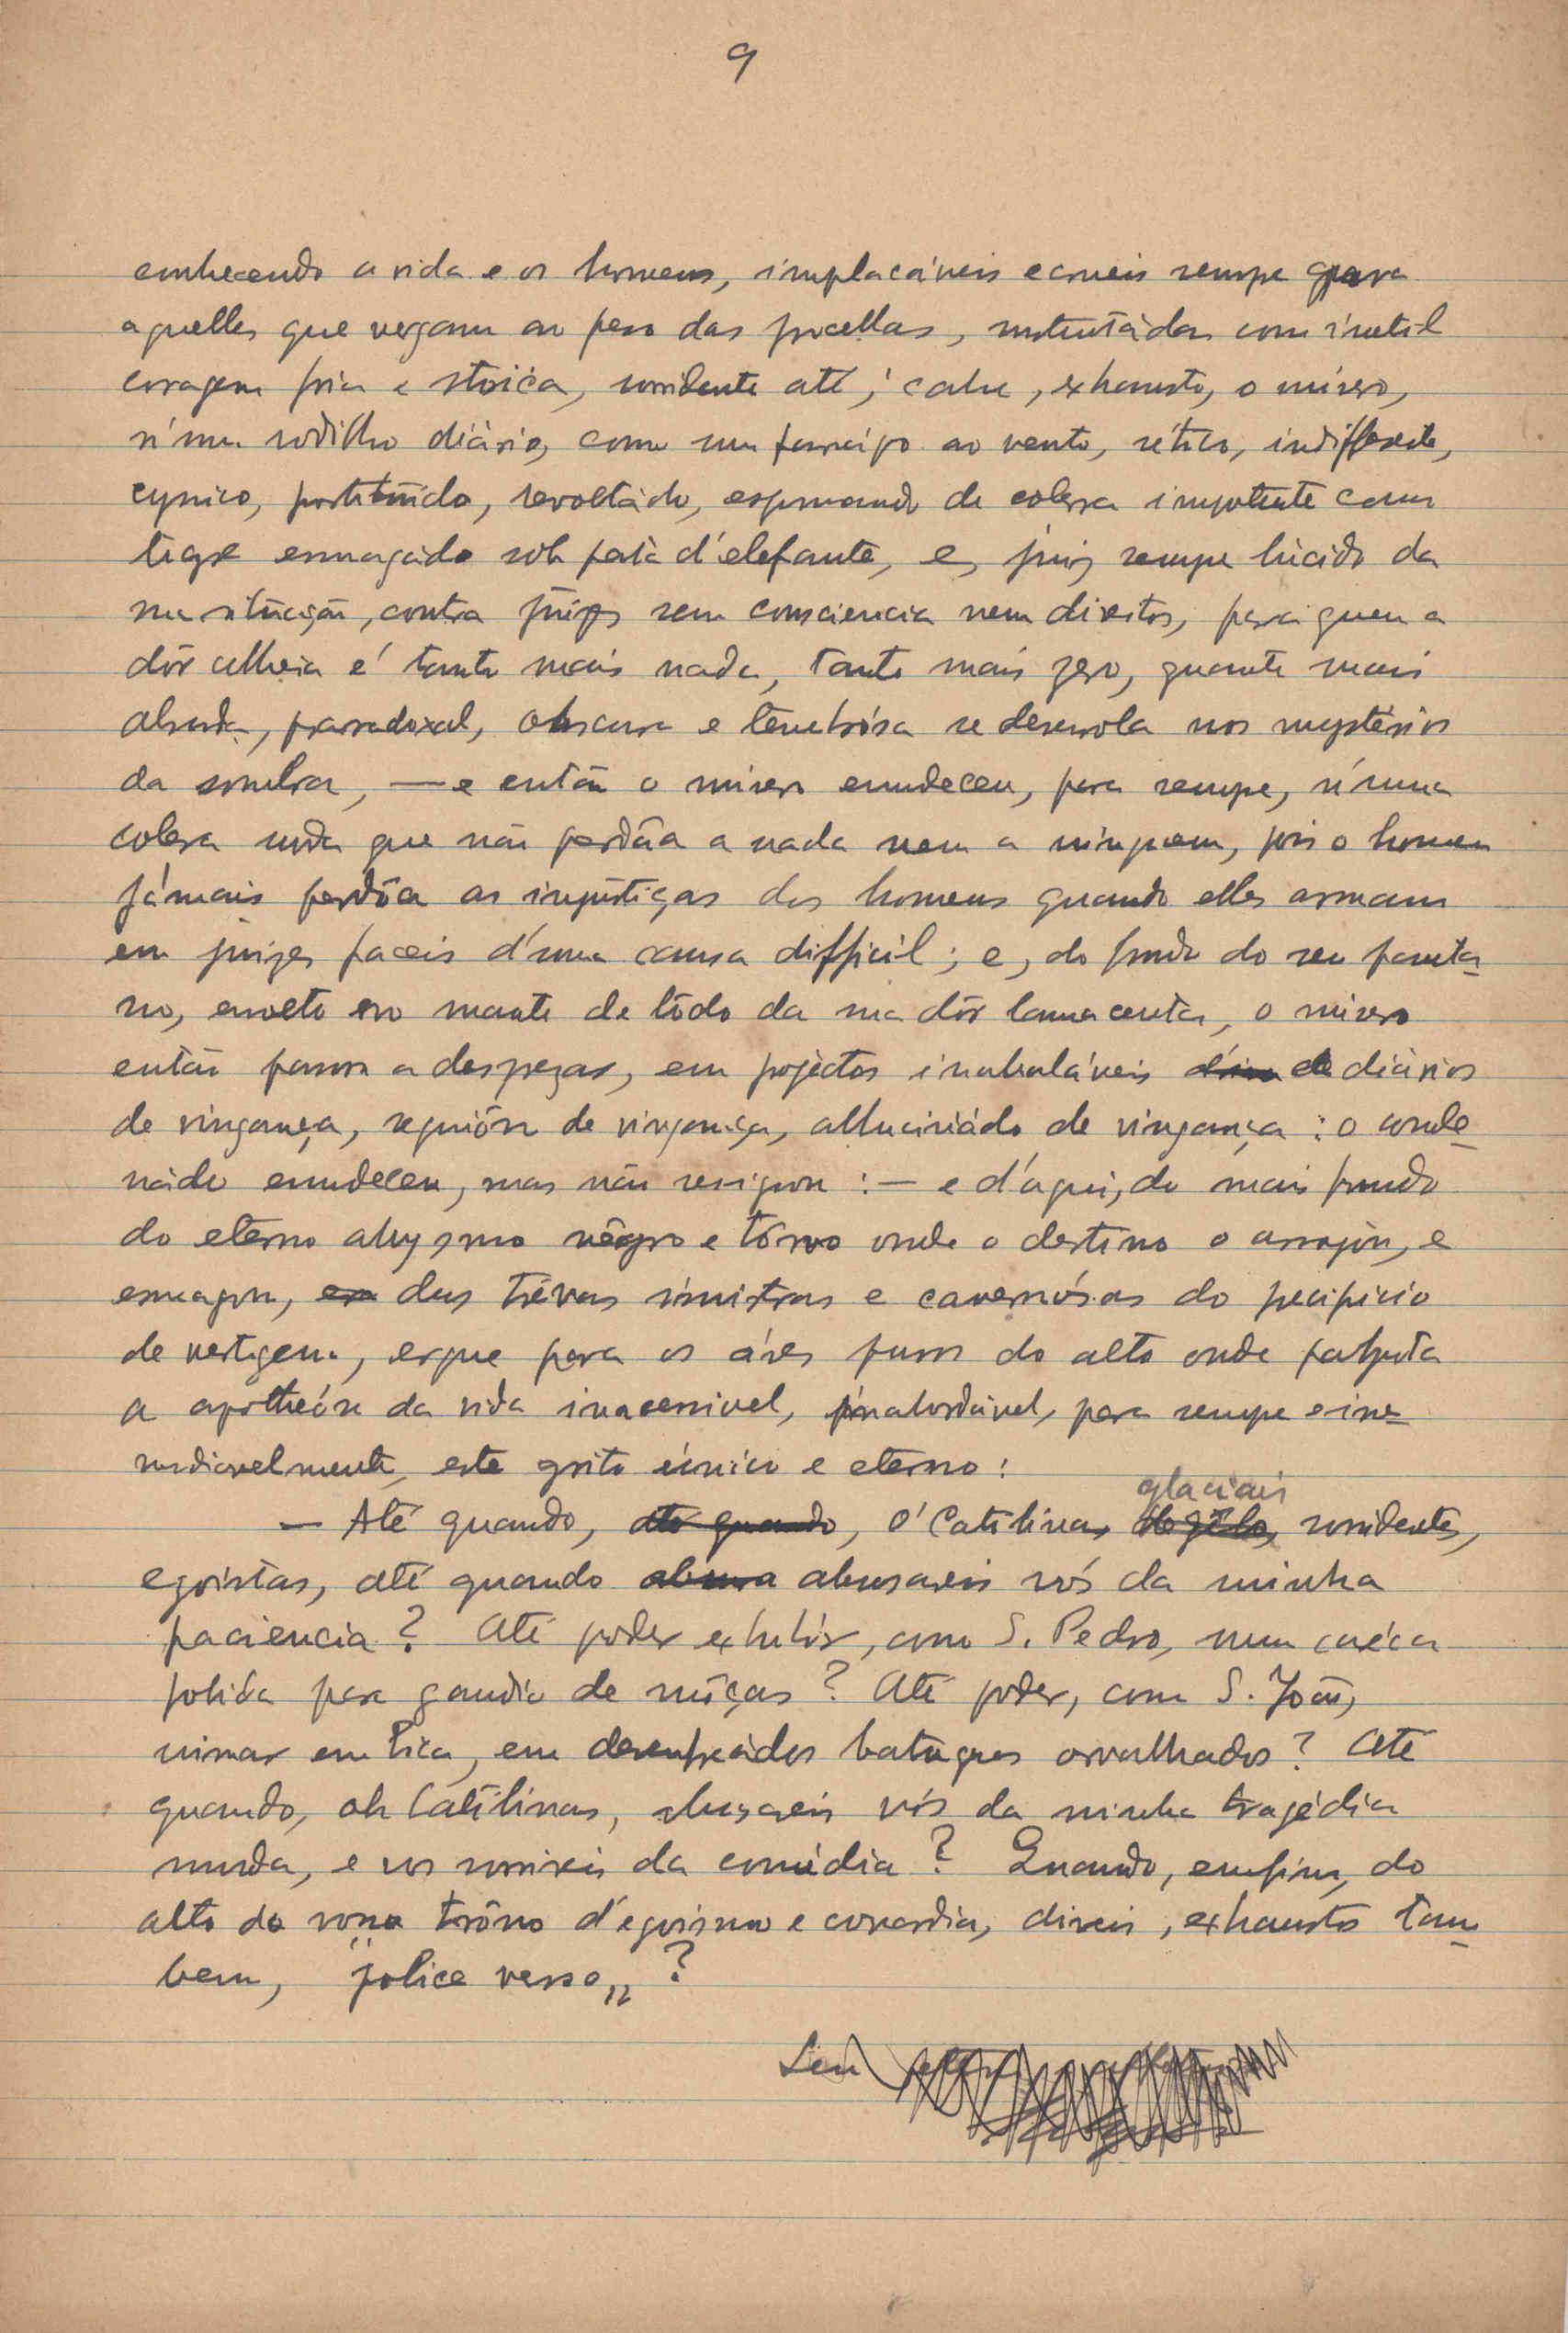 9
conhecendo a vida e os homens, implacáveis e crueis sempre para
aquelles que vergam ao peso das procellas, com inutil
coragem fria e stoica, sorridente até; cahe, exhausto, o mísero,
n'um rodilho diário, como um farrapo ao vento, indifferente,
cynico, prostituido, revoltádo, espumando de colera impotente como
tigre esmagádo sob pata d'elefante, e, juiz sempre lúcido da
sua situação, contra juizes sem consciencia nem direitos, para quem a
dôr alheia é tanto mais nada, tanto mais zero, quanto mais
absurda, parradoxal, obscura e tenebrósa se desenrola nos mystérios
da sombra, — e então o misero emudeceu, para sempre, n'uma
colera surda que não perdôa a nada nem a ninguem, pois o homem
jámais perdôa as injustiças dos homens quando elles armam
em juizes faceis d'uma causa difficil; e, do fundo do seu panta-
no, envolto no manto de lôdo da sua dôr lamacenta, o misero
então passou a despezar, em projectos inabaláveis de diários
de vingança, sequióso de vingança, allucinádo de vingança: o conde-
nádo emudeceu, mas não resignou: — e d'aqui, do mais fundo
do eterno abysmo nêgro e tôrvo onde o destino o arrojou, e
esmagou, das trévas sinistras e cavernósas do pecipicio
de vertigem, ergue para os áres puros do alto onde palpita
a apotheóse da vida inacessivel, inabordável, para sempre e irre-
mediavelmente, este grito único e eterno:
— Até quando, ató quando, ó Catilinas glaciais de gêlo, sorridentes,
egoistas, até quando abusareis vós da minha
paciencia? Até poder exhibir, como S. Pedro, uma caréca
polida para gaudio de môças? Até poder, como S. João,
em desenfreádos batuques orvalhados? Até
quando, oh Catilinas, abusareis vós da minha tragédia
muda, e vos sorrireis da comédia? Quando, emfim, do
alto do vosso trôno d'egoismo e covardia, direis, exhaustos tam-
bem, "police verso" ?
Seu